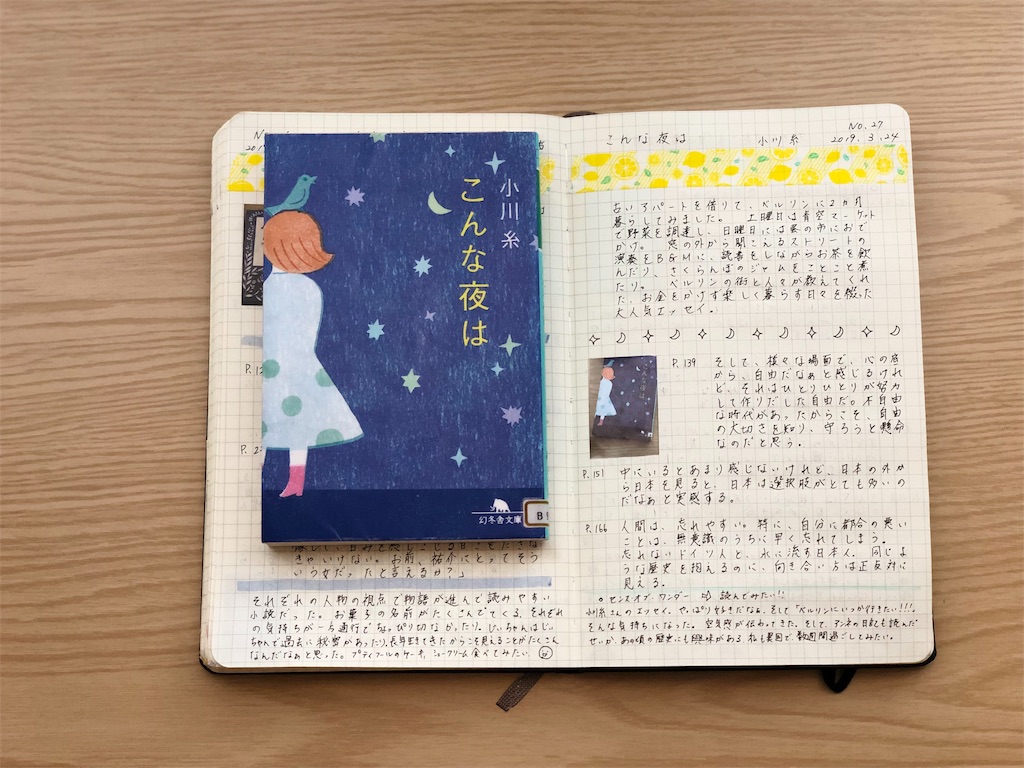 小川 糸
こんな夜は
幻冬舎文庫
P.12
P.2
きゃいけない。お前、祐介にとってそう
いう女だったと言えるか？」
それぞれの人物の視点で物語が進んで読みやすい
小説だった。お菓子の名前がたくさんでてくる。それぞれ
の気持ちが一方通行でちょっぴり切なかったり。じぃちゃんはじぃ
ちゃんで過去に秘密があったり、長年生きてきたからこそ見えることがたくさん
なんだなぁと思った。プティフールのケーキ、シュークリーム食べてみたい。
No.27
こんな夜は 小川糸 2019.3.24
古いアパートを借りて、ベルリンに2ヵ月
暮らしてみました。土曜日は青空マーケット
で野菜を調達し、日曜日には蚤の市におで
かけ。窓の外から聞こえるストリートの
演奏をBGMに、読書をしながらお茶を飲
んだり、さくらんぼのジャムをことこと煮
たり。ベルリンの街と人々が教えてくれ
た、お金をかけず楽しく暮らす日々を綴った
大人気エッセイ。
P.139 そして、様々な場面で、心の底
から、自由だなぁと感じるけれ
ど、それはひとりひとりが努力
して作りだした自由だ。不自由
な時代があったからこそ、自由
の大切さを知り、守ろうと懸命
なのだと思う。
P.151 中にいるとあまり感じないけれど、日本の外か
ら日本を見ると、日本は選択肢がとても多いの
だなぁと実感する。
P.166 人間は、忘れやすい。特に、自分に都合の悪い
ことは、無意識のうちに早く忘れてしまう。
忘れないドイツ人と、水に流す日本人。同じよ
うな歴史を抱えるのに、向き合い方は正反対に
見える。
○センスオブ・ワンダー ⇨ 読んでみたい!!
小川糸さんのエッセイ、やっぱり好きだなぁ。そして「ベルリンにいつか行きたい!!!」
そんな気持ちになった。空気感が伝わってきた。そして、アンネの日記も読んだ
せいか、あの頃の歴史にも興味がある。私も異国で、数週間過ごしてみたい。